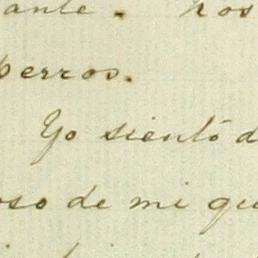 ante. Nos
perros.
Yo sientó d
oso de mi qu